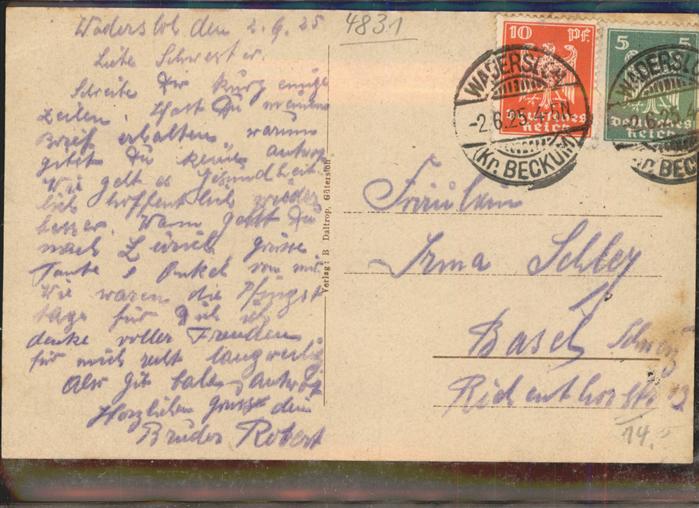 Wadersloh den 2.6.25
Liebe Schwester.
Schreibe Dir kurz einige
Zeilen. Hast Du meinen
Brief erhalten warum
gibst Du keine Antwort
Wie geht es Gesundheit-
lich hoffentlich wieder
besser. Wann gehst Du
nach Zürich grüsse
Tante & Onkel von mir.
Wie waren die Pfingst
tage für Dich ich
denke voller Freuden
für mich recht langweilig
Also gib bald Antwort
Herzlichen gruss dein
Bruder Robert
4831
10 Pf.
Deutsches
Reich
5 5
Deutsches
Reich
WADERSLOH
-2.6.25. 4-5 N
(Kr. BECKUM)
WADERSLO
.6.25
(Kr. BEC
Verlag: B Daltrop, Gütersloh
Fräulein
Irma Schley
Basel Schweiz
14.